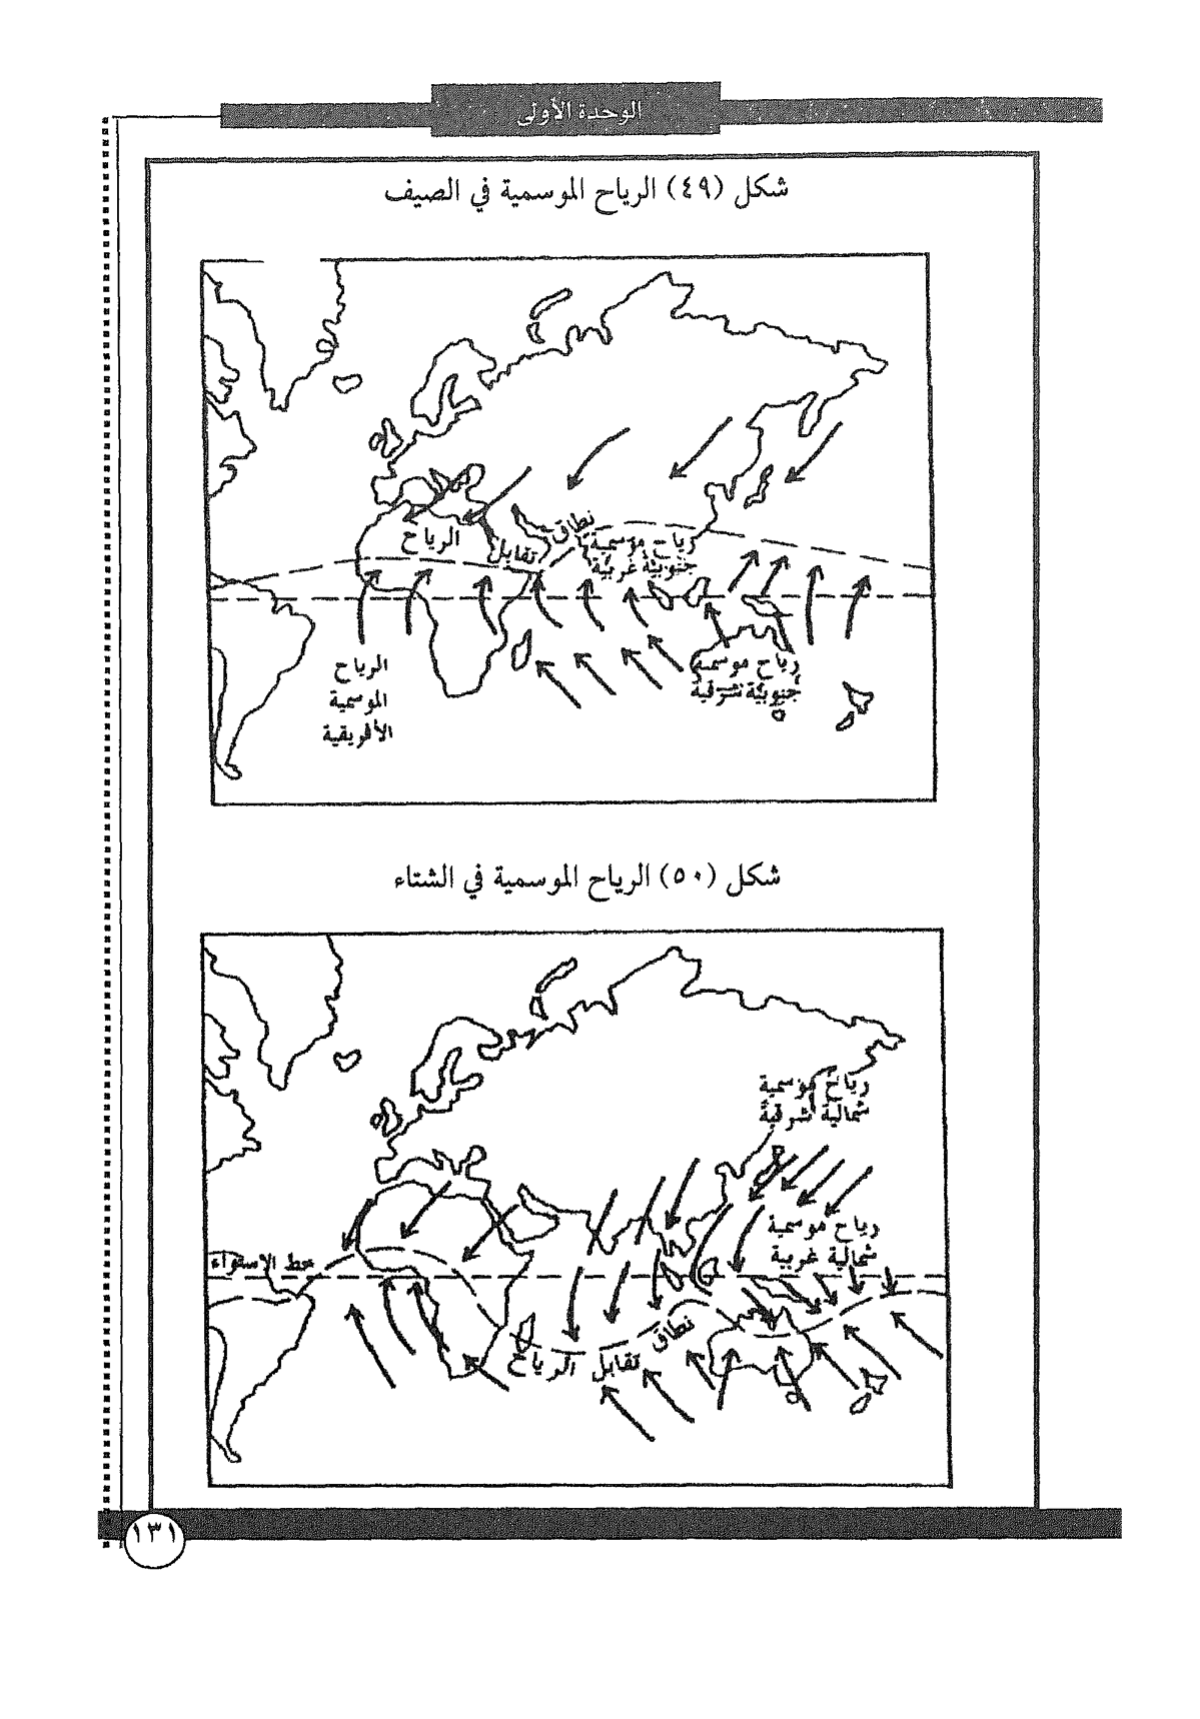 الوحدة الأولى
شكل (٤٩) الرياح الموسمية في الصيف
نطاق
تقابل
الرياح
رياح موسمية
جنوبية غربية
الرياح
الموسمية
الأفريقية
رياح موسمية
جنوبية شرقية
شكل (٥٠) الرياح الموسمية في الشتاء
رياح موسمية
شمالية شرقية
رياح موسمية
شمالية غربية
خط الاستواء
نطاق تقابل الرياح
١٣١